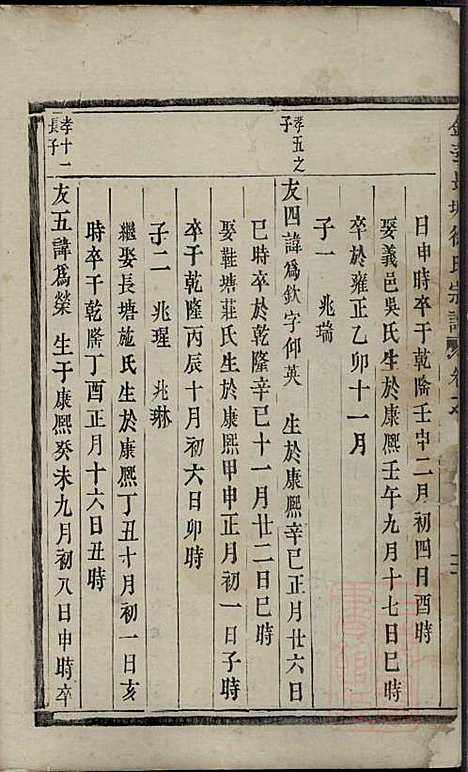 氏宗譜
日申時卒于乾隆壬申二月初四日酉時
娶義邑吳氏生於康熙壬午九月十七日巳時
卒於雍正乙卯十一月
子一 兆瑞
孝五之
子
友四諱為欽字仰英 生於康熙辛巳正月廿六日
巳時卒於乾隆辛巳十一月廿二日巳時
娶鞋塘莊氏生於康熙甲申正月初一日子時
卒于乾隆丙辰十月初六日卯時
子二 兆瑆 兆琳
繼娶長塘施氏生於康熙丁丑十月初一日亥
時卒于乾隆丁酉正月十六日丑時
孝十二
長子
友五諱為榮 生于康熙癸未九月初八日申時卒